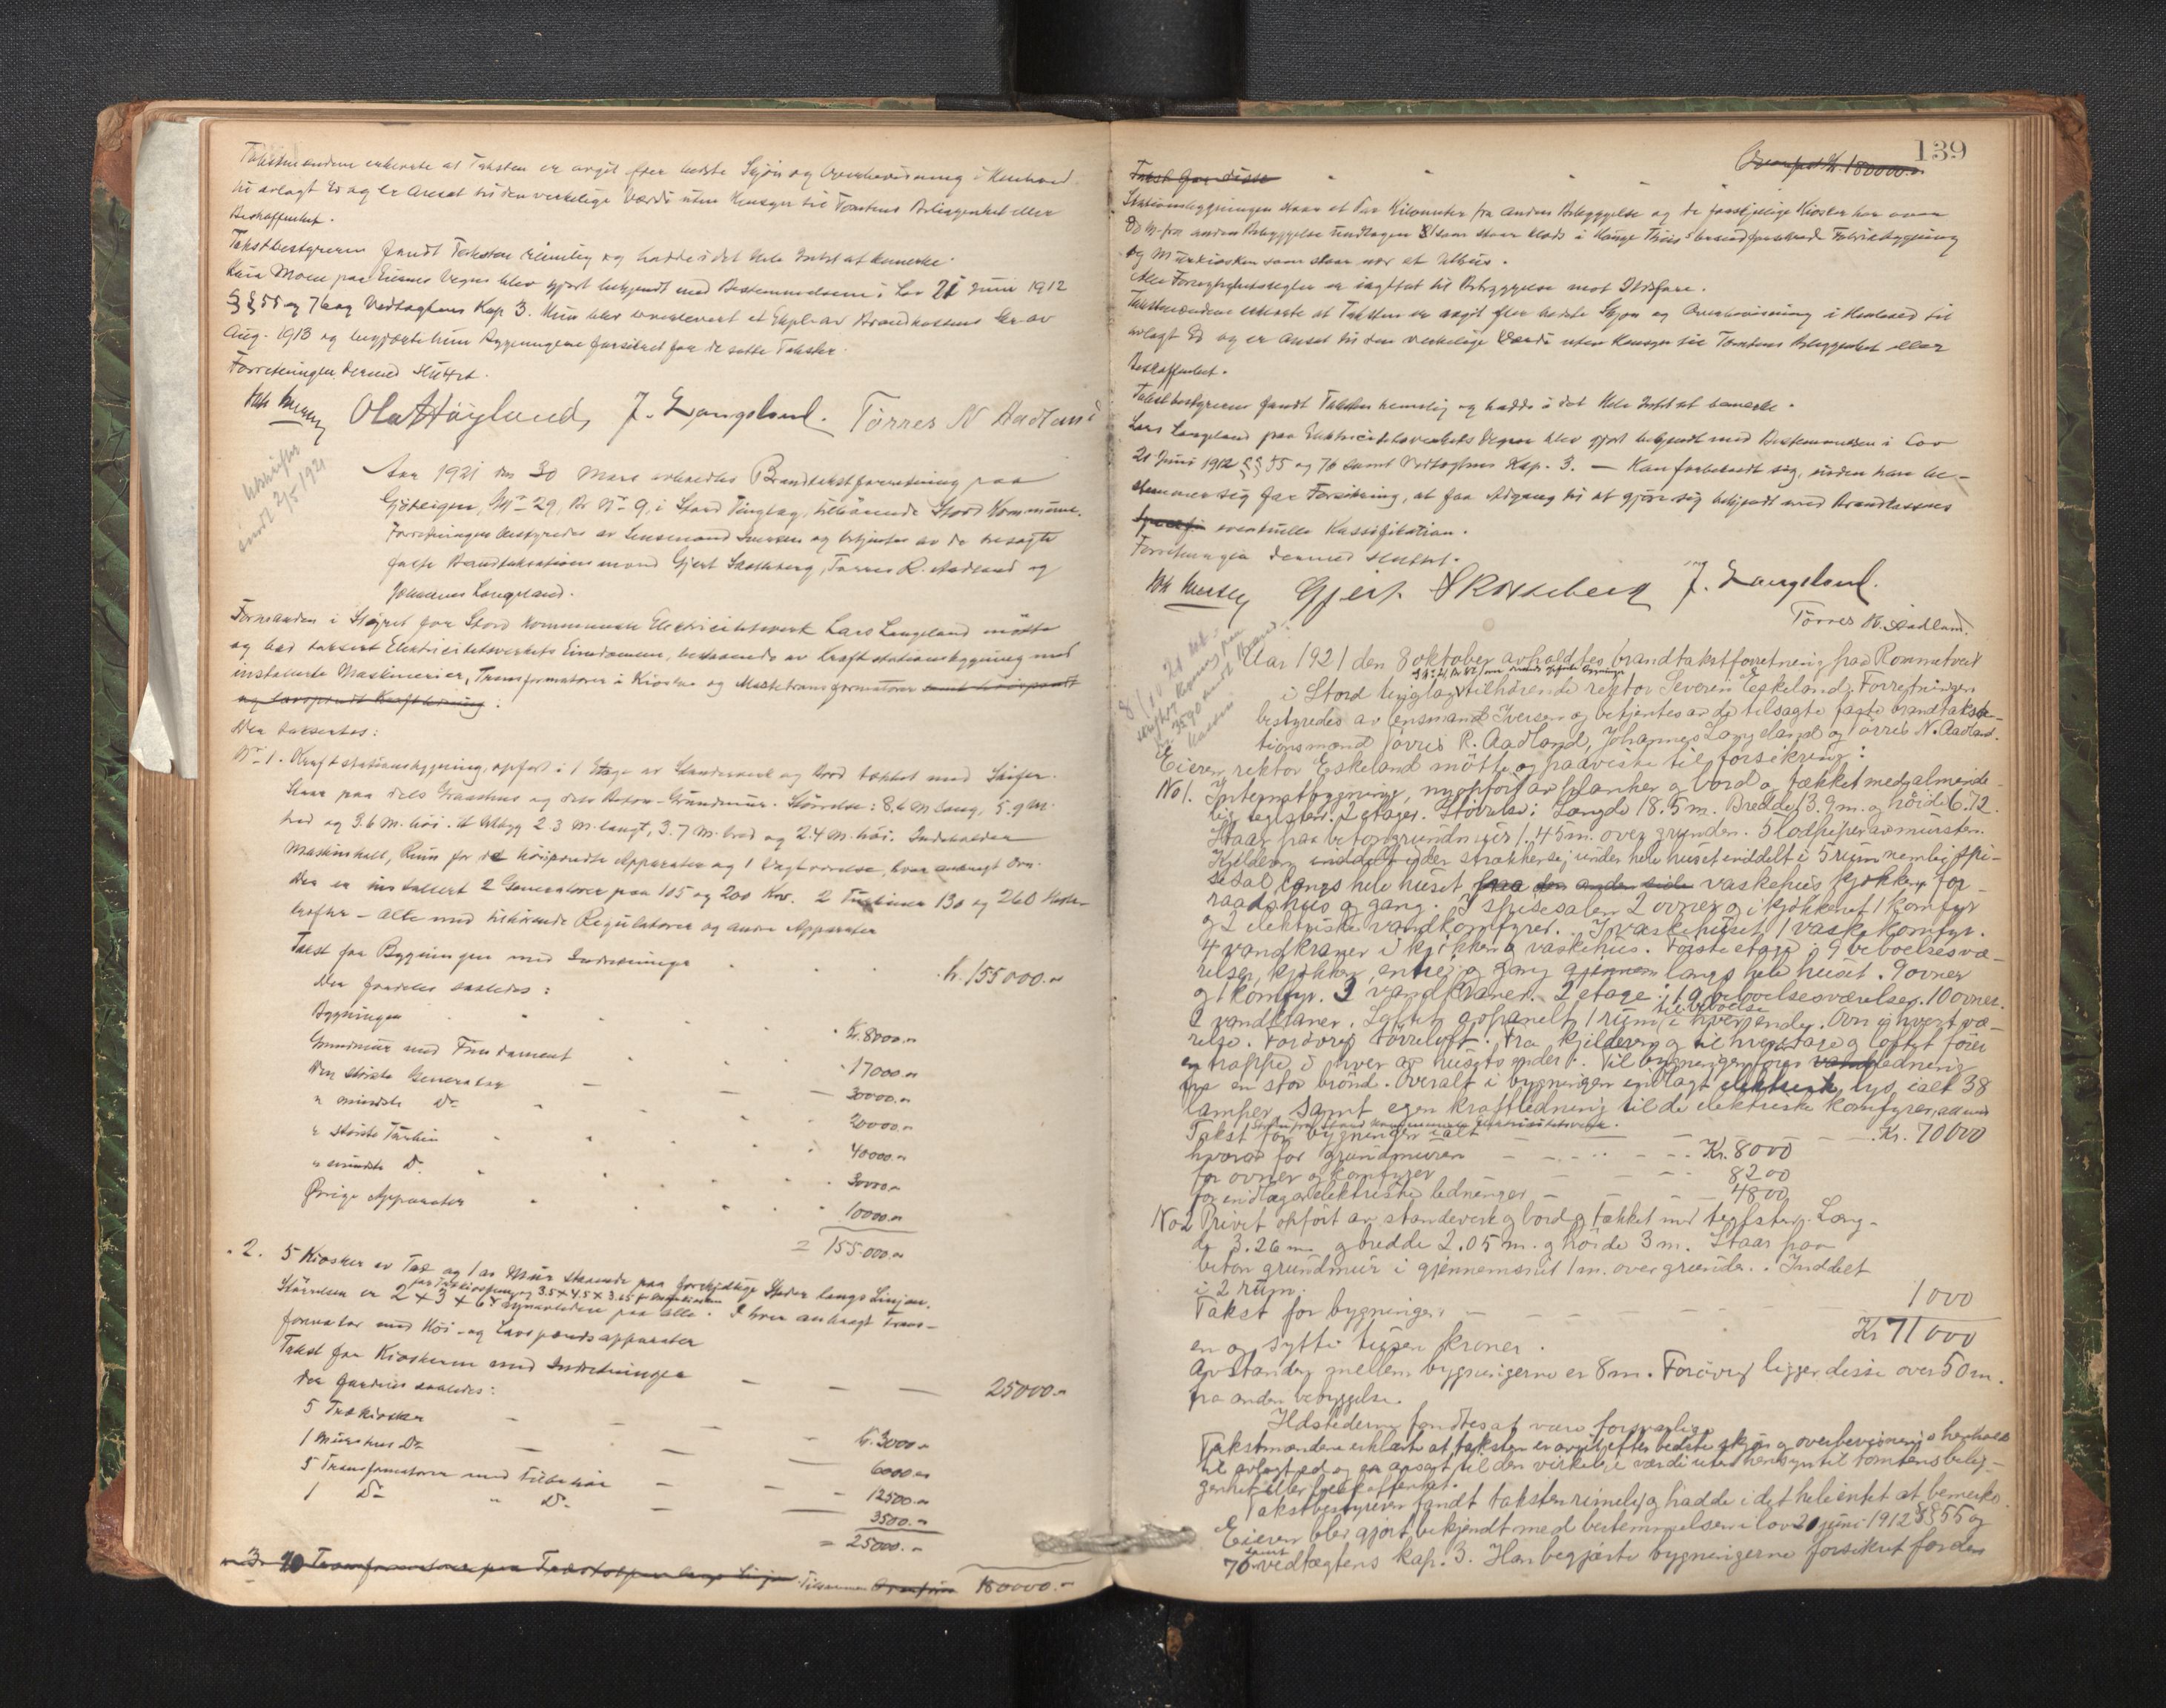 Takstmændene erklærte at Taksten er avgit efter bedste Skjøn og Overbevisning i Henhold
til avlagt Ed og er Ansat til den verkelige Værdi uten Hensyn til Tomtens Beliggenhet eller
Beskaffenhet.
Takstbestyreren fandt Taksten rimelig og hadde i det Hele Intet at bemerke.
Moen paa Eiernes Vegne blev gjort bekjendt med Bestemmelserne i Lov 21 Juni 1912
§§ 55 og 76 og Vedtægtens Kap 3. Hun blev overlevert et Expl. av Brandkassens av
Aug. 1913 og begjærte hun Bygningene forsikret for de satte Takster.
Forretningen dermed sluttet.
Ola Høyland, J. Langeland. Tørres N Aadland
Utskrift
sendt 2/5 1921
Aar 1921 den 30 Mars avholdtes Brandtakstforretning paa
Gjøteigen, Gr. Nr. 29, Br. Nr. 9, i Stord Tinglag, tilhørende Stord Kommune.
Forretningen bestyredes av Lensmand Iversen og betjentes av de tilsagte
faste Brandtaksationsmænd Gjert Skotteberg, Tørres R. Aadland og
Johannes Langeland.
Formanden i Styret for Stord kommunale Electricitetsverk Lars Langeland møtte
og bad taksert Elektricitetsverkets Eiendomme, bestaaende av Kraftstationsbygning med
installerte Maskinerier, Transformatorer i Kiosker og Mastetransformatorer samt høispændt
og lavspændt Kraftledning.
Der taksertes:
Nr. 1. Kraftstationsbygning, opført i 1 Etage av Standerverk og Bord tækket med Skifer.
Staar paa dels Graastens og dels Beton-Grundmur. Størrelse: 8.6 M lang, 5.9 M.
bred og 3.6 M. høi. Et Utbyg 2.3 M. langt, 3.7 M. bred og 2.4 M. høi. Indeholder
Maskinhall, Rum for de høispændte Apparater og 1 Vagtværelse, hvor anbragt Ovn.
Der er installert 2 Generatorer paa 105 og 200 Kw. 2 Turbiner 130 og 260 Heste-
kræfter - alle med tilhørende Regulatorer og andre Apparater
Takst for Bygningen med Indretninger kr. 155000.-
Der fordeles saaledes:
Bygningen Kr. 8000.-
Grundmur med Fundament 17000.-
Den største Generator 30000.-
" mindste Do 20000.-
" største Turbin 40000.-
" mindste Do. 30000.-
Øvrige Apparater 10000.-
= 155.000.-
" 2. 5 Kiosker av Træ og 1 av Mur staaende paa forskjellige Steder langs Linjen.
for Trækioskene og 3.5 x 4.5 x 3.65 for Murkiosken
Størrelsen er 2 x 3 x 6. Lynavledere paa alle. I hver anbragt Trans-
formator med Høi- og Lavspændsapparater
Takst for Kioskerne med Indretninger 25000.-
Der fordeles saaledes:
5 Trækiosker Kr. 3000.-
1 Murhus Do 6000.-
5 Transformatorer med Tilbehør 12500.-
1 Do " Do. 3500.-
= 25000.-
" 3. 10 Transformatorer paa Træstolper langs Linjen. Tilsammen Overført 180000.-
139
Overført Kr. 180000.-
Takst for disse
Stationsbygningen staar et Par Kilometer fra anden Bebyggelse og de forskjellige Kiosker har over
20 M. fra anden Bebyggelse undtagen 1 som staar klods i Hauge Thiis's brandforsikrede Fabrikbygning
og Murkiosken som staar nær et Uthus.
Alle Forsigtighetsregler er iagttat til Betryggelse mot Ildsfare.
Takstmændene erklærte at Taksten er avgit efter bedste Skjøn og Overbevisning i Henhold til
avlagt Ed og er Ansat til den verkelige Værdi uten Hensyn til Tomtens Beliggenhet eller
Beskaffenhet.
Takstbestyreren fandt Taksten rimelig og hadde i det Hele Intet at bemerke.
Lars Langeland paa Elektricitetsverkets Vegne blev gjort bekjendt med Bestemmelsen i Lov
21 Juni 1912 §§ 55 og 76 samt Vedtægtens Kap. 3. — Han forbeholdt sig, inden han be-
stemmer sig for Forsikring, at faa Adgang til at gjøre sig bekjendt med Brandkassens
eventuelle Klassifikation.
Forretningen dermed sluttet.
Gjert Skotteberg J. Langeland.
Tørres N. Aadland.
Aar 1921 den 8 oktober avholdtes brandtakstforretning paa Rommetveit
i Stord tinglag tilhørende rektor Severin Eskeland. Forretningen
bestyredes av lensmand Iversen og betjentes av de tilsagte faste brandtaksa-
tionsmænd Tørris R. Aadland, Johannes Langeland og Tørris N. Aadland.
Eieren, rektor Eskeland møtte og paaviste til forsikring:
No 1. Internatbygning, nyopført av planker og bord og tækket med alminde-
lig teglsten. 2 etager. Størrelse: Længde 18.5 m. Bredde 13.9 m. og høide 6.72.
Staar paa betongrundmur 1.45 m. over grunden. 5 lodpiper av mursten.
Kjelderen inddelt der strækker sig under hele huset inddelt i 5 rum nemlig spi-
sesal langs hele huset paa den anden side vaskehus kjøkken, for-
raadshus og gang. I spisesalen 2 ovner og i kjøkkenet 1 komfyr
og 2 elektriske vandkomfyrer. I vaskehuset 1 vaskekomfyr.
4 vandkraner i kjøkken og vaskehus. Første etage: 9 beboelsesvæ-
relser, kjøkken, entre og gang gjennem langs hele huset. 9 ovner
og 1 komfyr. 3 vandkraner. 2 etage: 10 beboelsesværelser. 10 ovner.
til beboelse
2 vandkraner. Loftet oppanelt 1 rum i hver ende. Ovn i hvert væ-
relse. Forøvrig tørreloft. Fra kjelderen og til hver etage og loftet fører
en trappe i hver av husets ender. Til bygningen fører vandledning
fra en stor brønd. Overalt i bygningen indlagt elektrisk lys, ialt 38
lamper, samt egen kraftledning til de elektriske komfyrer, alt med
strøm fra Stord kommunale elektricitetsverk.
Takst for bygningen ialt Kr. 70000
hvorav for grundmuren Kr. 8000
for ovner og komfyrer 8200
for indlagte elektriske ledninger 4800
No 2 Privet opført av standerverk og bord og tækket med teglsten. Læng-
de 3.26 m. og bredde 2.05 m. og høide 3 m. Staar paa
beton grundmur i gjennemsnit 1 m. over grunden. Inddelt
i 2 rum.
Takst for bygningen 1000
Kr 71000
en og sytti tusen kroner.
Avstanden mellem bygningerne er 8 m. Forøvrig ligger disse over 50 m.
fra anden bebyggelse.
Ildstederne fandtes at være forsvarlige.
Takstmændene erklærte at taksten er avgit efter bedste skjøn og overbevisning i henhold
til avlagt ed og er ansat til den virkelige værdi uten hensyn til tomtens belig-
genhet eller beskaffenhet.
Takstbestyreren fandt taksten rimelig og hadde i det hele intet at bemerke.
Eieren blev gjort bekjendt med bestemmelsen i lov 21 juni 1912 §§ 55 og
76 samt vedtægtens kap. 3. Han begjærte bygningerne forsikret for den